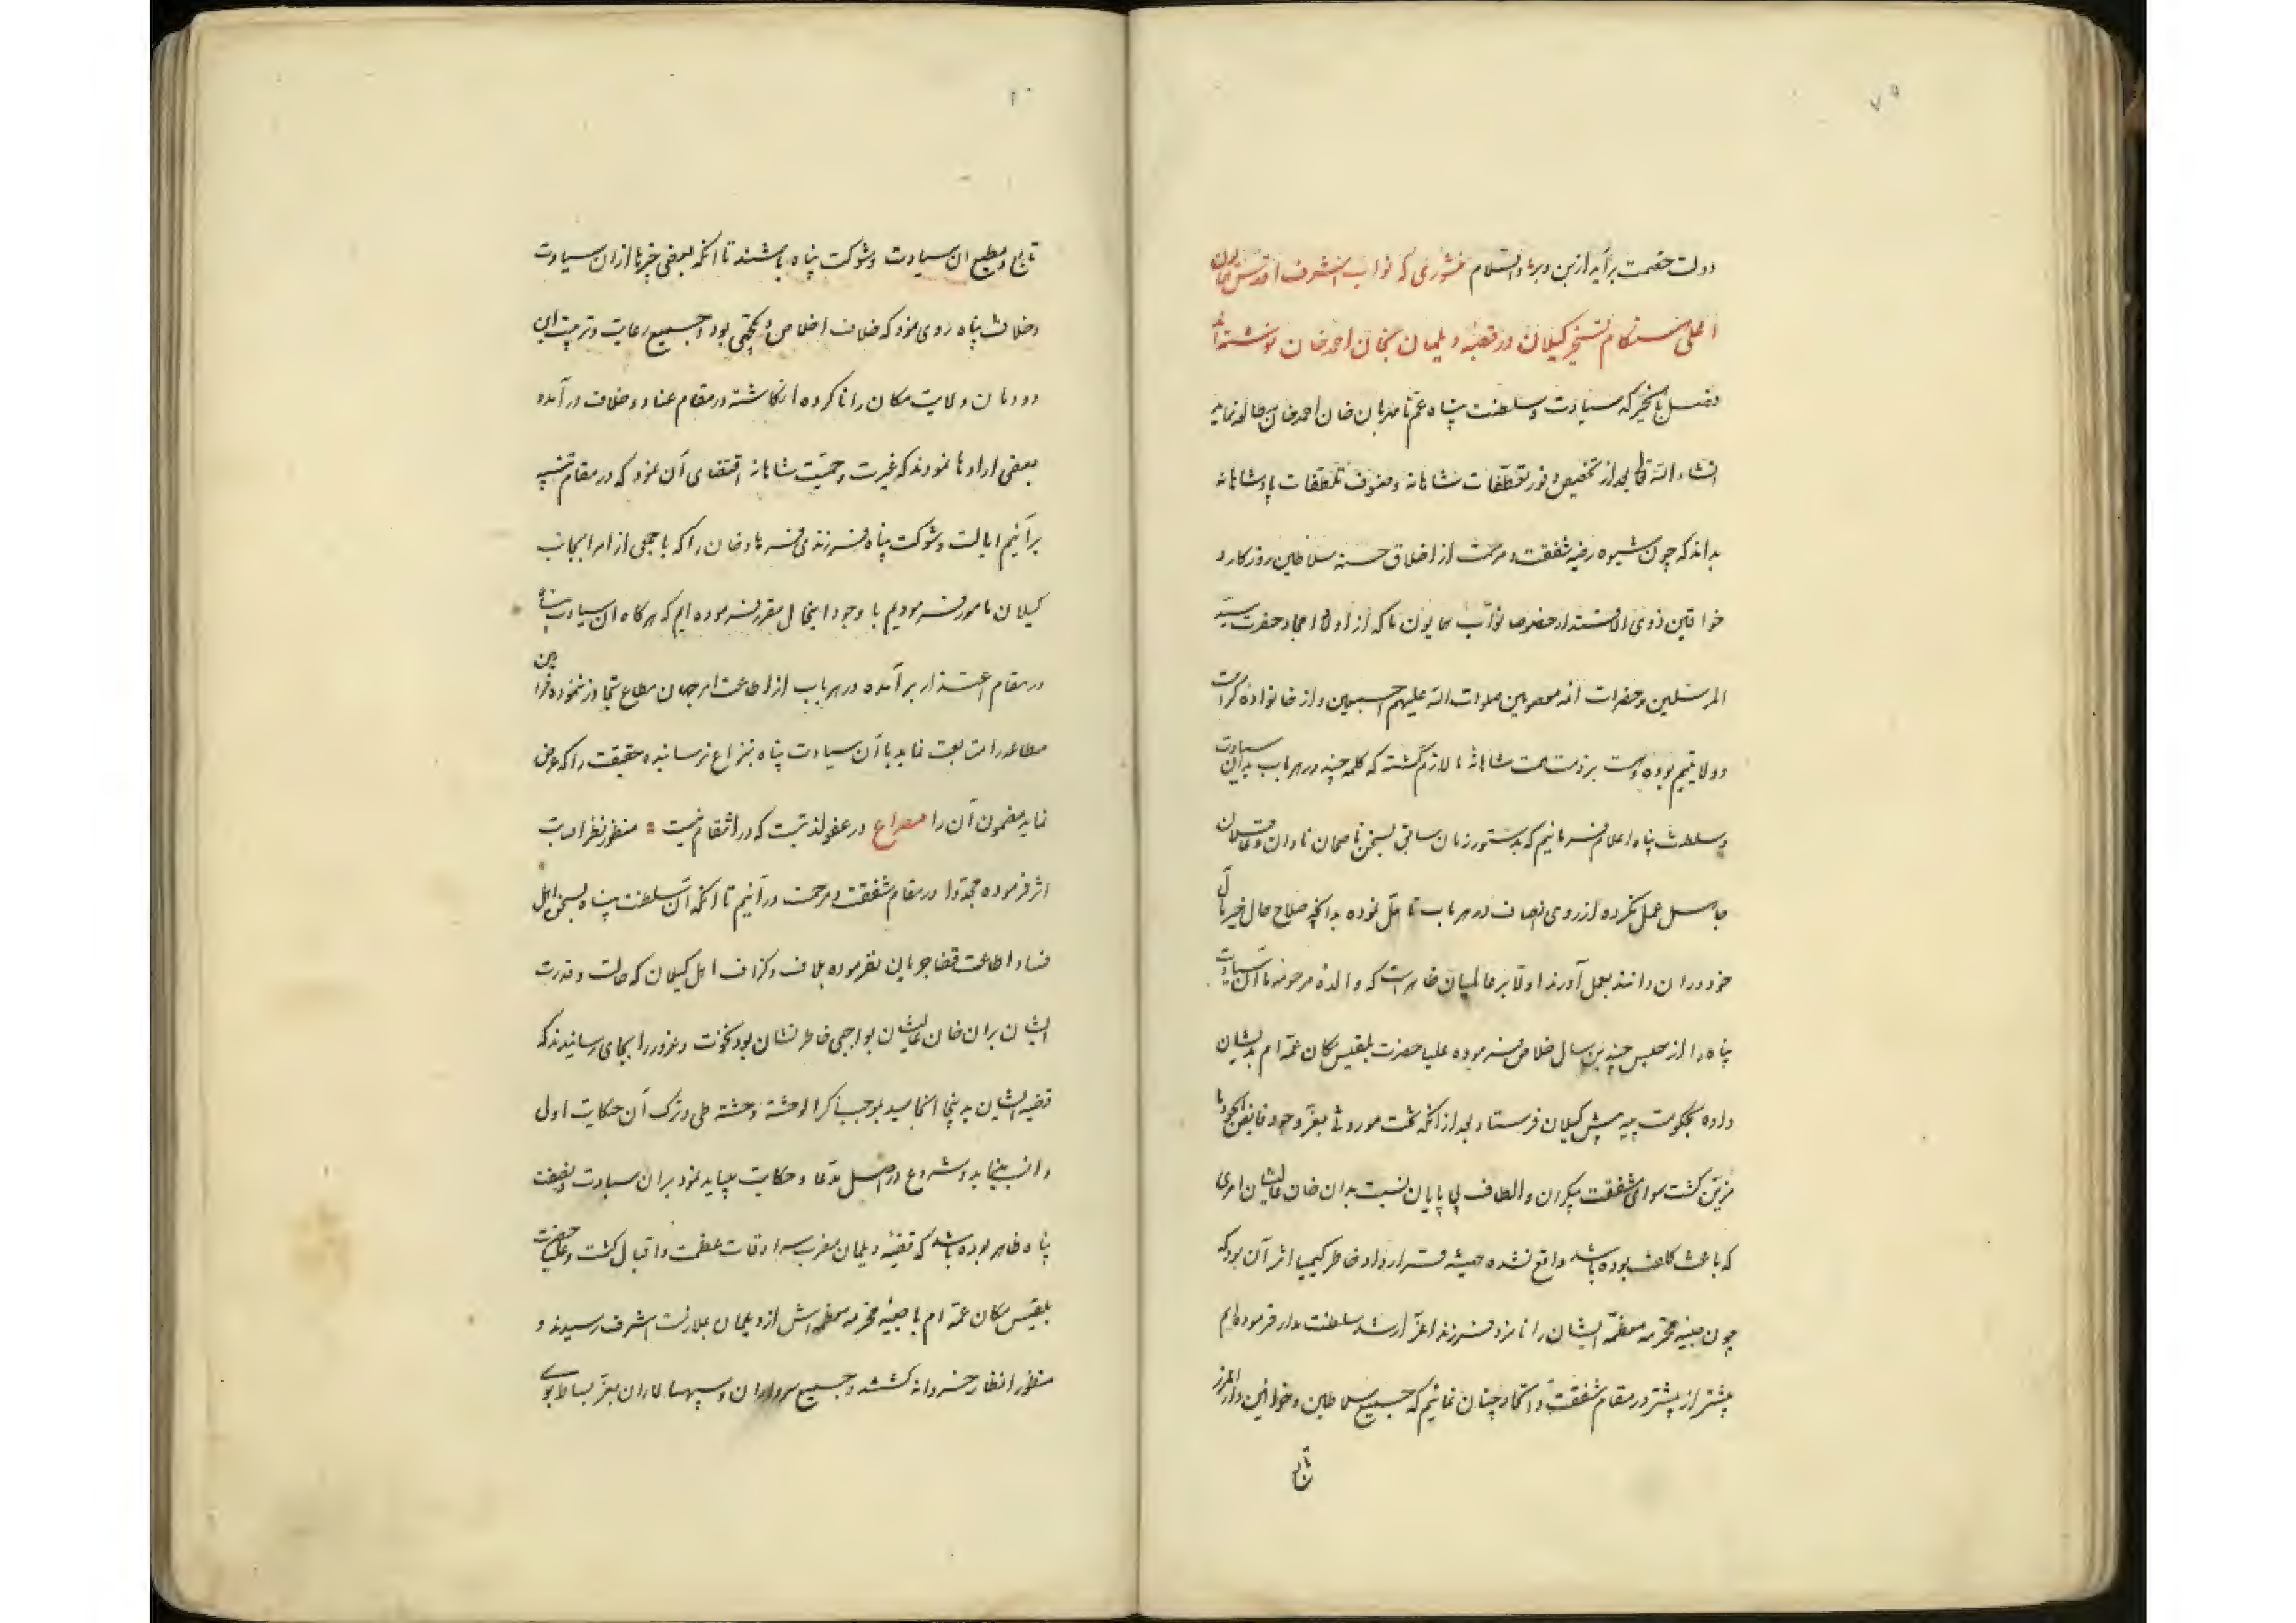 ۷۹
دولت خصمت برآید از بن و بر والسلام منشوری که نواب اشرف اقدس همایون
اعلی هنگام تسخیر گیلان در قصبه دیلمان بخان احمد خان نوشته اند
که سیادت و سلطنت پناه عم نامهربان خان احمد خان مطالعه نماید
انشاء الله تعالی بعد از تخصیص وفور تعطفات شاهانه و صنوف تلطفات پادشاهانه
بداند که چون شیوه رضیه شفقت و مرحمت از اخلاق حسنه سلاطین روزکار و
خواقین ذوی الاقتدار خصوصا نواب همایون ما که از اولاد امجاد حضرت سید
المرسلین و حضرات ائمه معصومین صلوات الله علیهم اجمعین و از خانواده کرامت
و ولایتیم بوده و هست بر ذمت همت شاهانه ما لازم گشته که کلمه چند در هر باب بدان سیادت
و سلطنت پناه اعلام فرمائیم که بدستور زمان سابق بسخن ناصحان نادان و عاقلان
جاهل عمل نکرده از روی انصاف در هر باب تأمل نموده بدانچه صلاح حال خیر مآل
خود در ان دانند بعمل آورند اولا بر عالمیان ظاهر است که والده مرحومه ما آن سیادت
پناه را از حبس چندین سال خلاص فرموده علیا حضرت بلقیس مکان عمه ام بدیشان
داده بحکومت بیه پیش گیلان فرستاد بعد از انکه تخت موروثی بعز وجود فایض الجود ما
مزین کشت سوای شفقت بیکران و الطاف بی پایان نسبت بدان خان عالیشان امری
که باعث کلفت بوده باشد واقع نشده همیشه قرارداد خاطر کیمیا اثر آن بود که
چون صبیه محترمه معظمه ایشان را نامزد فرزند اعز ارشد سلطنت مدار فرموده ایم
بیشتر از پیشتر در مقام شفقت و اتحاد چنان نمائیم که جمیع سلاطین و خوانین دارالمرز
تابع
تابع و مطیع ان سیادت و شوکت پناه باشند تا انکه بعضی چیزها از ان سیادت
و جلالت پناه روی نمود که خلاف اخلاص و یکجهتی بود و جمیع رعایت و تربیت این
دودمان ولایت مکان را ناکرده انکاشته در مقام عناد و خلاف درآمده
بعضی اراده ها نمودند که غیرت و حمیت شاهانه اقتضای آن نمود که در مقام تنبیه
برآئیم ایالت و شوکت پناه فرزندی فرهاد خان را که با جمعی از امرا بجانب
گیلان مامور فرمودیم با وجود اینحال مقرر فرموده ایم که هرکاه ان سیادت پناه
در مقام اعتذار برآمده در هر باب از اطاعت امر جهان مطاع تجاوز ننموده فرامین
مطاعه را متابعت نماید با آن سیادت پناه بنزاع نرسانیده حقیقت را که عرض
نماید مضمون آن را مصراع در عفو لذتیست که در انتقام نیست منظور نظر اصابت
اثر فرموده مجددا در مقام شفقت و مرحمت درآئیم تا انکه آن سلطنت پناه بسخن اهل
فساد اطاعت قضا جریان نفرموده بلاف و کزاف اهل گیلان که حالت و قدرت
ایشان بران خان عالیشان بواجبی خاطر نشان بود نخوت و غرور را بجای رسانیدند که
قضیه ایشان بدینجا انجامید بموجب ذکر الوحشة وحشة طی و ترک آن حکایت اولی
و انسب مینماید و شروع در اصل مدعا و حکایت میباید نمود بران سیادت و نصفت
پناه ظاهر بوده باشد که قصبه دیلمان مضرب سرادقات عظمت و اقبال کشت و علیا حضرت
بلقیس مکان عمه ام با صبیه محترمه معظمه اش از دیلمان بملازمت اشرف رسیدند و
منظور انظار خسروانه کشتند و جمیع سرداران و سپهسالاران بعز بساط بوسی